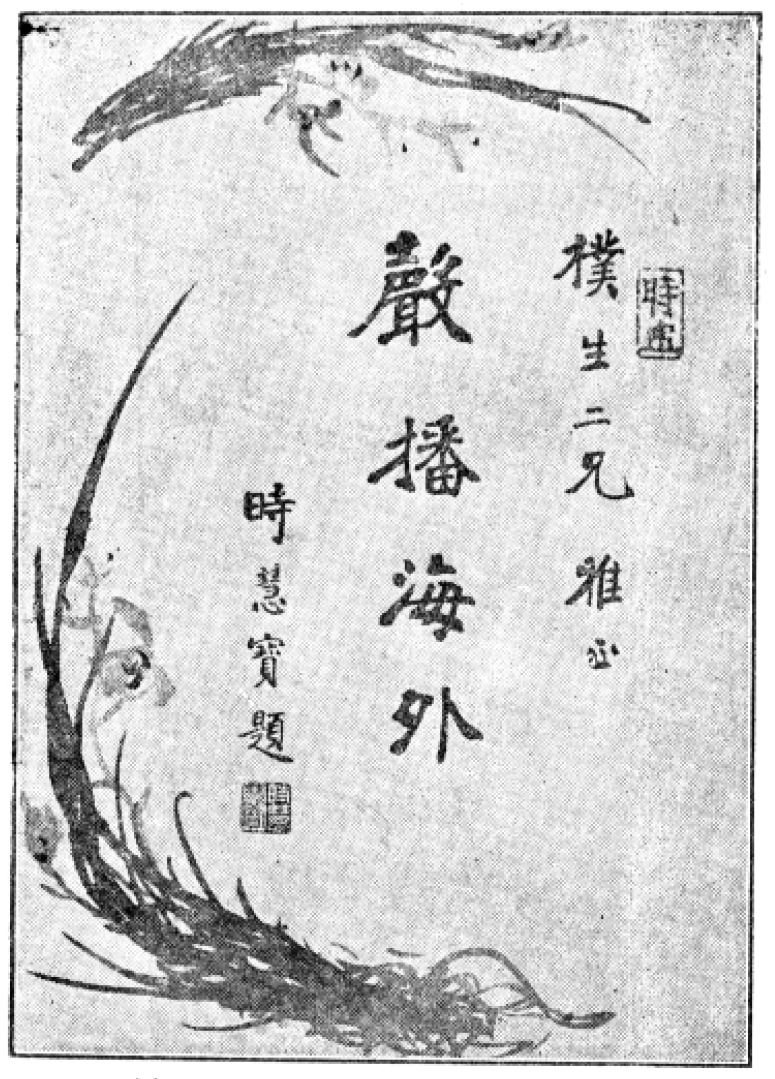 樸生二兄雅正
聲播海外
時慧寶題